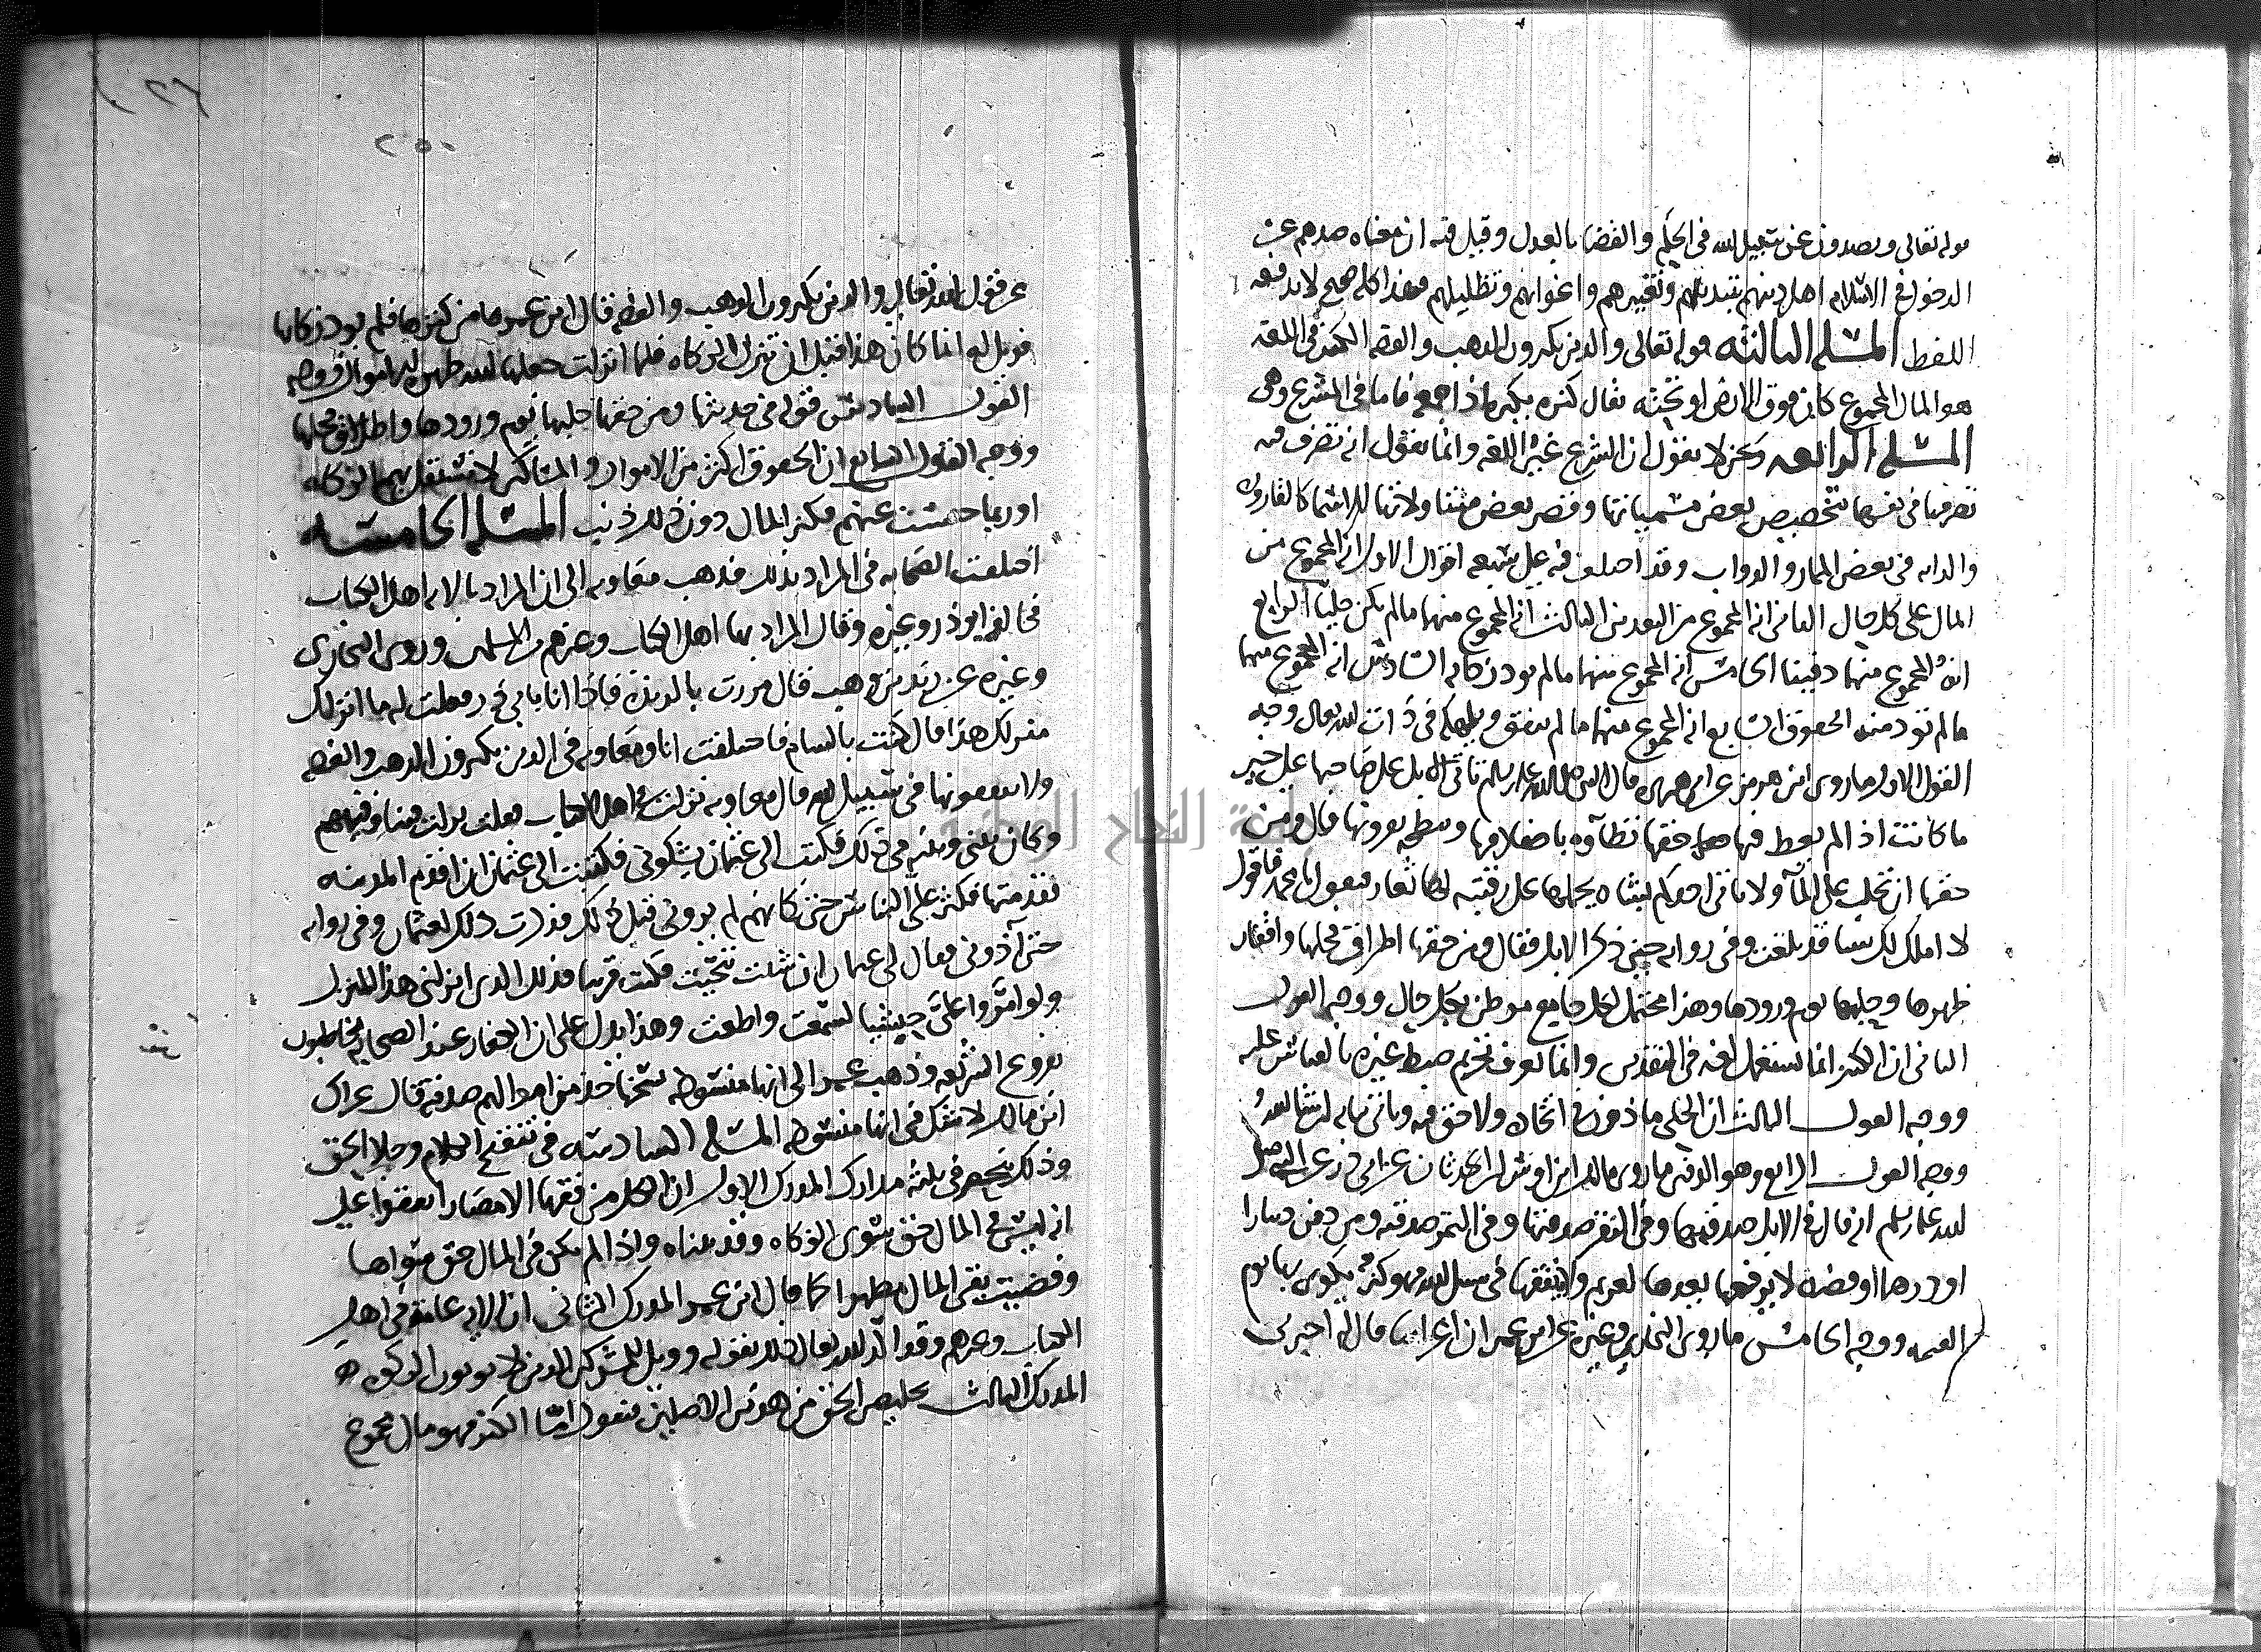 قوله تعالى ويصدون عن سبيل الله في الحكم والقضا بالعدل وقيل فيه ان معناه صدهم عن
الدخول في الاسلام اهل دينهم بتبديلهم وتغييرهم واغوايهم وتظليلهم وهذا كله صحيح لا يدفعه
اللفظ المسئلة الثالثة قوله تعالى والذين يكنزون الذهب والفضه الكنز في اللغه
هو المال المجموع كان فوق الارض او تحته يقال كنزه يكنزه اذا جمعه فاما في الشرع وهي
المسئلة الرابعه ونحن لا نقول ان الشرع غير اللغه وانما نقول انه تصرف فيه
تصرفها في نفسها بتخصيص بعض مسمياتها وقصر بعض متناولاتها للاسما كالقاروره
والدابه في بعض الجماد والدواب وقد اختلف فيه على سبعه اقوال الاول انه المجموع من
المال على كل حال الثاني انه المجموع من النقدين الثالث انه المجموع منهما ما لم يكن حليا الرابع
انه المجموع منهما دفينا الخامس انه المجموع منهما ما لم تود زكاته السادس انه المجموع منهما
ما لم تود منه الحقوق السابع انه المجموع منهما ما لم ينفق ويهلك في ذات الله تعالى وجه
القول الاول ما روى ابن هرمز عن ابي هريره قال النبي صلى الله عليه وسلم تاتي الابل على صاحبها على خير
ما كانت اذا لم يعط فيها حقها تطاوه باخفافها وتنطحه بقرونها قال ومن
حقها ان تحلب على الما ولا ياتي احدكم بشاه يحملها على رقبته لها ثغار فيقول يا محمد فاقول
لا املك لك شيا قد بلغت وفي روايه حين ذكر الابل فقال ومن حقها اطراق فحلها وافقار
ظهرها وحلبها يوم ورودها وهذا محتمل لكل جامع موطن بكل حال ووجه القول
الثاني ان الكنز انما يستعمل لغه في النقدين وانما يعرف تحريم ضبط غيره بالقياس عليه
ووجه القول الثالث ان الحلي ماذون في اتخاذه ولا حق فيه وياتي بيانه ان شا الله
ووجه القول الرابع وهو الدفين ما روى مالك ابن اوس ابن الحدثان عن ابي ذر عن النبي صلى
الله عليه وسلم انه قال في الابل صدقتها وفي البقر صدقتها وفي التمر صدقته ومن دفن دينارا
او درهما او فضه لا يدفعها بعدها لغريم ولا ينفقها في سبيل الله فهو كنز يكوى به يوم
القيمه ووجه الخامس ما روى البخاري وغيره عن ابن عمر ان اعرابيا قال له اخبرني
٢٥٠
عن قول الله تعالى والذين يكنزون الذهب والفضه قال ابن عمر ما من كنزها فلم يود زكاتها
فويل له انما كان هذا قبل ان تنزل الزكاه فلما انزلت جعلها الله طهره للاموال ووجه
القول السادس قوله في حديثها ومن حقها حلبها يوم ورودها واطراق فحلها
ووجه القول السابع ان الحقوق اكثر من الاموال والمساكين لا تستقل بهم الزكاه
او ربما حبست عنهم فكنز المال دون ذلك ذنب المسئلة الخامسه
اختلفت الصحابه في المراد بذلك فذهب معاويه الى ان المراد بالايه اهل الكتاب
فخالفه ابو ذر وغيره وقال المراد بها اهل الكتاب وغيرهم من المسلمين وروى البخاري
وغيره عن زيد بن وهب قال مررت بالربذه فاذا انا بابي ذر فقلت له ما انزلك
منزلك هذا قال كنت بالشام فاختلفت انا ومعاويه في الذين يكنزون الذهب والفضه
ولا ينفقونها في سبيل الله قال معاويه نزلت في اهل الكتاب فقلت نزلت فينا وفيهم
وكان بيني وبينه في ذلك فكتب الى عثمان يشكوني فكتب الى عثمان ان اقدم المدينه
فقدمتها فكثر على الناس حتى كانهم لم يروني قبل ذلك فذكرت ذلك لعثمان وفي روايه
حتى آذوني فقال لي عثمان ان شئت تنحيت فكنت قريبا فذلك الذي انزلني هذا المنزل
ولو امروا علي حبشيا لسمعت واطعت وهذا يدل على ان الكفار عند الصحابه يخاطبون
بفروع الشريعه وذهب عمر الى انها منسوخه نسختها خذ من اموالهم صدقه قال عراك
ابن مالك لا شك في انها منسوخه المسئله السادسه في تنقيح الكلام وجلا الحق
وذلك ينحصر في ثلثه مدارك المدرك الاول ان الكل من فقها الامصار اتفقوا على
انه ليس في المال حق سوى الزكاه وقد بيناه واذا لم يكن في المال حق سواها
وقضيت بقي المال مطهرا كما قال ابن عمر المدرك الثاني ان الايه عامه في اهل
الكتاب وغيرهم وقد اكد الله تعالى ذلك بقوله وويل للمشركين الذين لا يوتون الزكوه
المدرك الثالث تخليص الحق من هذين الاصلين فنقول اما الكنز فهو مال مجموع